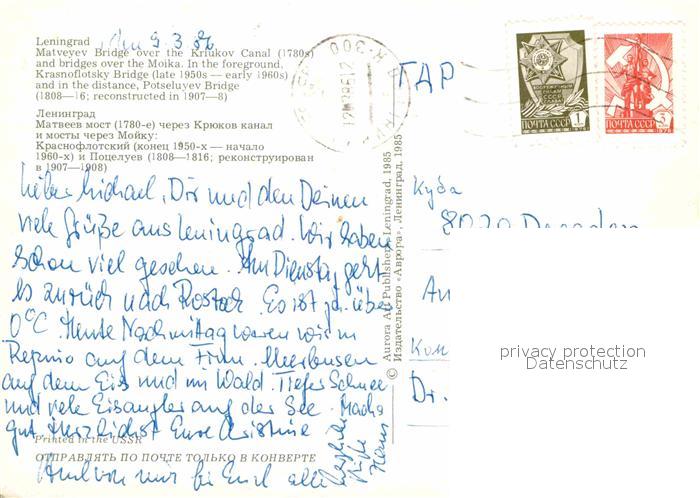 Leningrad
, den 9.3.86
Matveyev Bridge over the Kriukov Canal (1780s)
and bridges over the Moika. In the foreground,
Krasnoflotsky Bridge (late 1950s — early 1960s)
and in the distance, Potseluyev Bridge
(1808—16; reconstructed in 1907—8)
Ленинград
Матвеев мост (1780-е) через Крюков канал
и мосты через Мойку:
Краснофлотский (конец 1950-х — начало
1960-х) и Поцелуев (1808—1816; реконструирован
в 1907—1908)
Lieber Michael, Dir und den Deinen
viele Grüße aus Leningrad. Wir haben
schon viel gesehen. Am Dienstag geht
es zurück nach Rostock. Es ist ja über
0°C. Heute Nachmittag waren wir in
Repino auf dem Finn. Meerbusen
auf dem Eis und im Wald. Tiefer Schnee
und viele Eisangler auf der See. Machs
gut. Herzlichst Eure Christine
Printed in the USSR
ОТПРАВЛЯТЬ ПО ПОЧТЕ ТОЛЬКО В КОНВЕРТЕ
Auch von mir für Euch alle
herzliche
Grüße
Hans
© Aurora Art Publishers, Leningrad, 1985
Издательство «Аврора», Ленинград, 1985
ПОЧТА СССР 1
ПОЧТА СССР 3
ГДР
Куда
8020 Dresden
Ан
Ком
Dr.
privacy protection
Datenschutz